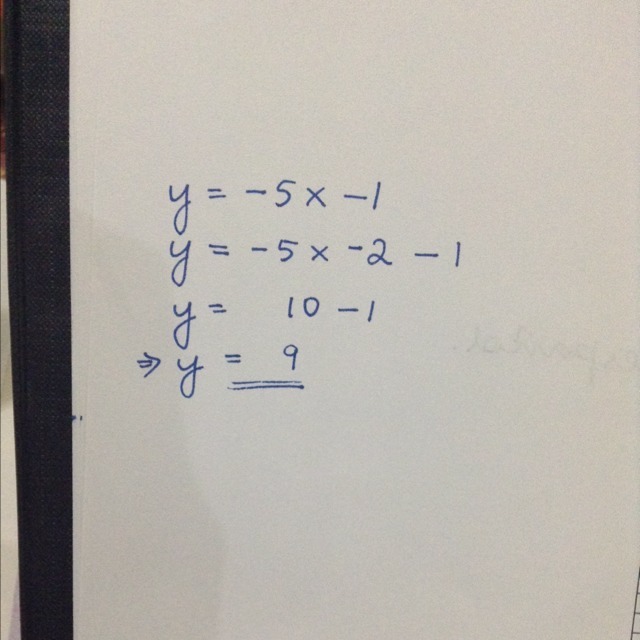 y = -5x -1
y = -5 x -2 - 1
y = 10 - 1
⇒ y = 9